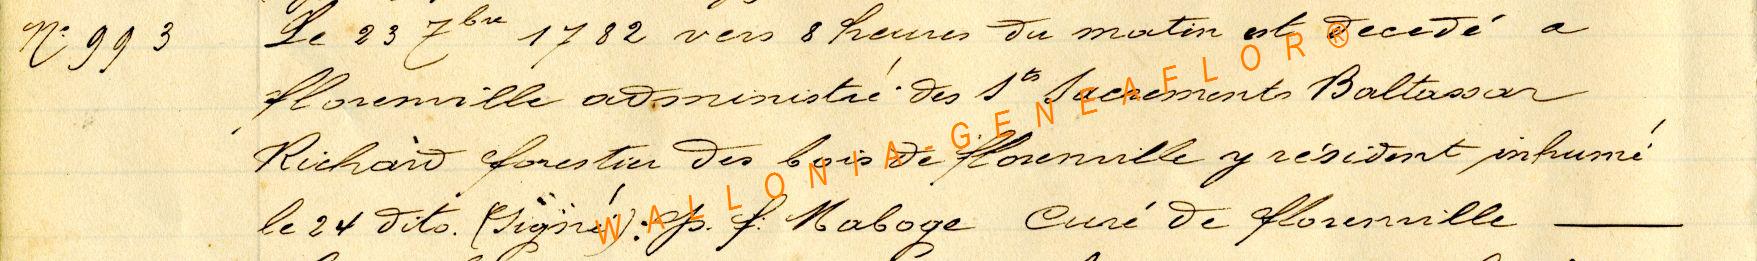 N° 993 Le 23 7bre 1782 vers 8 heures du matin est decedé a
florenville administré des Sts Sacrements Baltassar
Richard forestier des bois de florenville y résident inhumé
le 24 dito. (Signé): p. f. Maboge Curé de florenville —
WALLONIA-GENEAFLOR®